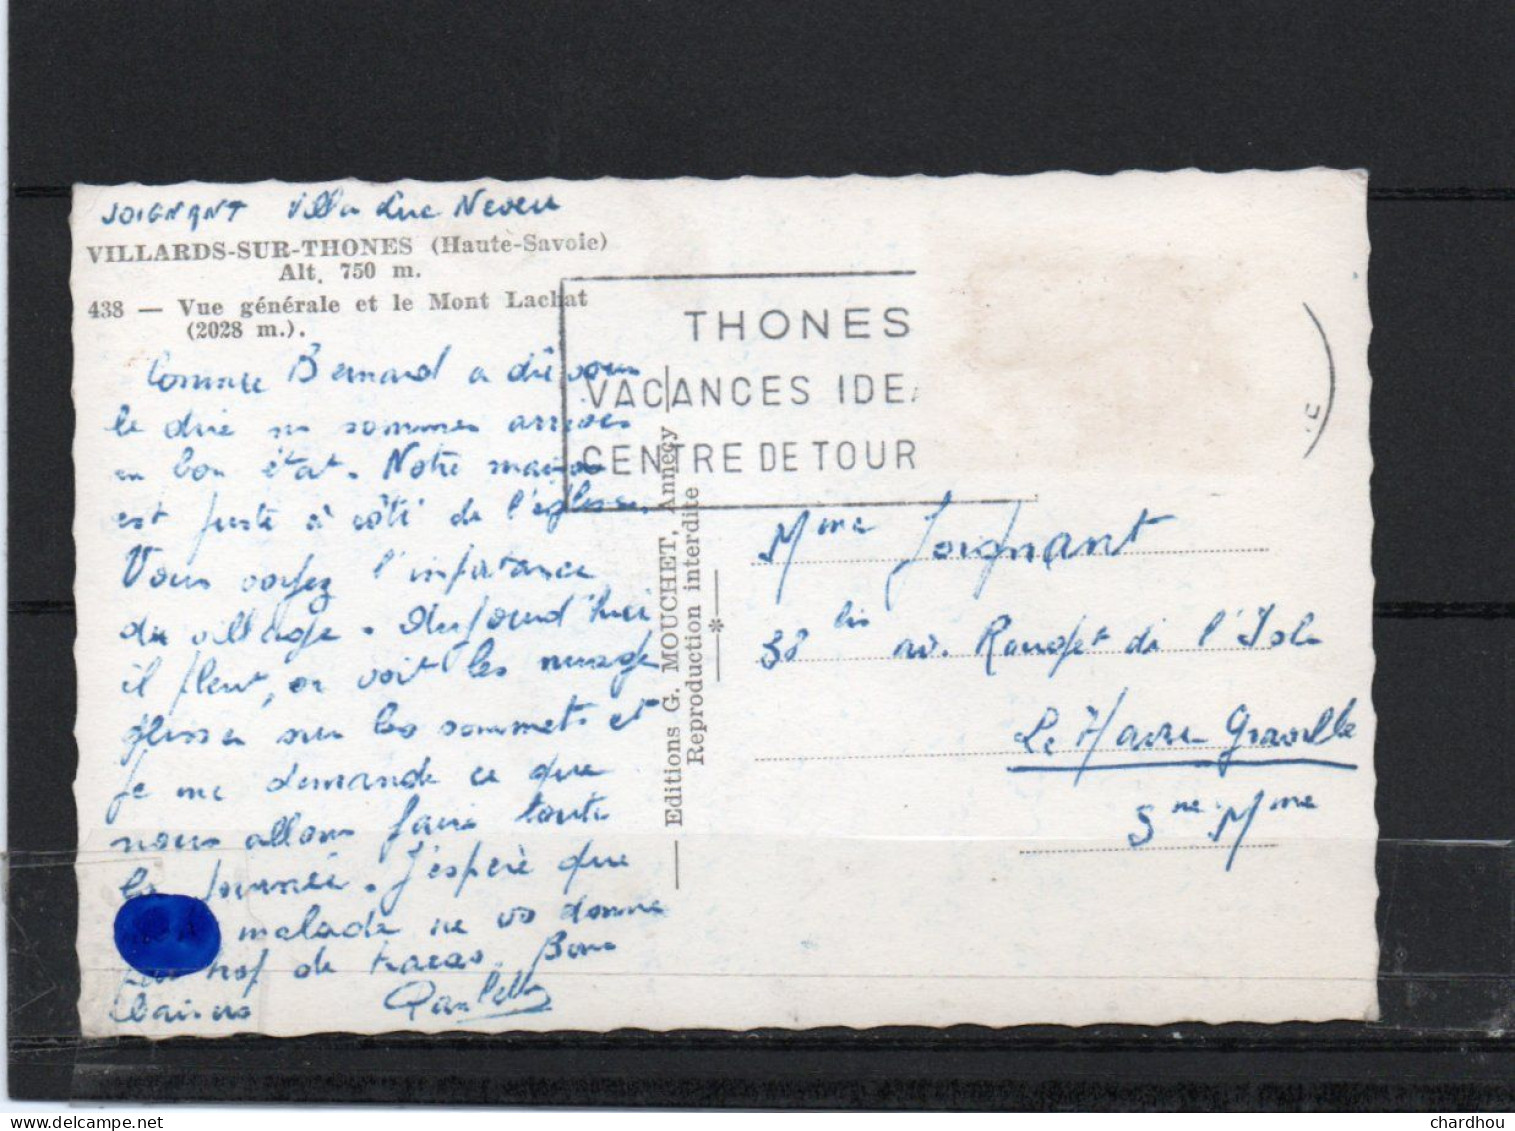 JOIGNANT Villa Luc Neveu
VILLARDS-SUR-THONES (Haute-Savoie)
Alt. 750 m.
438 — Vue générale et le Mont Lachat
(2028 m.).
Comme Bernard a dû vous
le dire ns sommes arrivés
en bon état. Notre maison
est juste à côté de l'église.
Vous voyez l'importance
du village. Aujourd'hui
il pleut, on voit les nuages
glisser sur les sommets et
je me demande ce que
nous allons faire toute
la journée. J'espère que
malade ne vs donne
pas trop de tracas. Bons
baisers
THONES
VACANCES IDEA
CENTRE DE TOUR
Editions G. MOUCHET, Annecy
Reproduction interdite
Mme Joignant
38 bis av. Rouget de l'Isle
Le Havre Graville
Sne Mme
chardhou